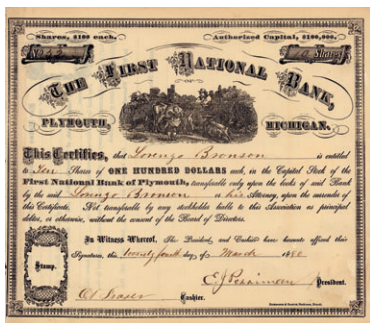 Shares, $100 each.
Authorized Capital, $100,000.
Shares
The First National Bank,
PLYMOUTH, MICHIGAN.
This Certifies, that Lorenzo Bronson is entitled
to Ten Shares of ONE HUNDRED DOLLARS each, in the Capital Stock of the
First National Bank of Plymouth, transferable only upon the books of said Bank
by the said Lorenzo Bronson or his Attorney, upon the surrender of
this Certificate. Not transferable by any stockholder liable to this Association as principal
debtor, or otherwise, without the consent of the Board of Directors.
In Witness Whereof, The President, and Cashier have hereunto affixed their
Signatures, this twenty fourth day of March 1880
Stamp.
President.
Cashier.